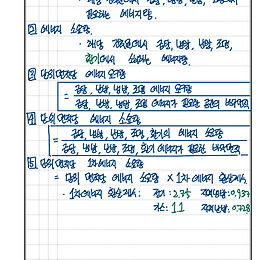 필요하는 에너지량.
② 에너지 소요량.
· 해당 건축물에서 급탕, 난방, 냉방, 조명,
환기에서 소비하는 에너지량.
③ 단위면적당 에너지 요구량
= 급탕, 난방, 냉방, 조명 에너지 요구량
급탕, 난방, 냉방, 조명 에너지가 필요한 공간의 바닥면적
④ 단위면적당 에너지 소요량
= 급탕, 난방, 냉방, 조명, 환기의 에너지 소요량
급탕, 난방, 냉방, 조명, 환기 에너지가 필요한 바닥면적
⑤ 단위면적당 1차에너지 소요량
= 단위 면적당 에너지 소요량 × 1차 에너지 환산계수
· 1차에너지 환산계수: 전기: 2.75 지역냉방: 0.937
가스: 1.1 지역난방: 0.728